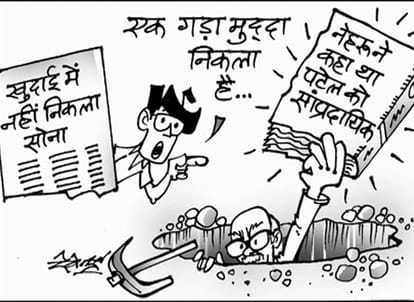 एक गड़ा मुद्दा
निकला
है...
खुदाई में
नहीं निकला
सोना
नेहरू ने
कहा था
पटेल को
सांप्रदायिक